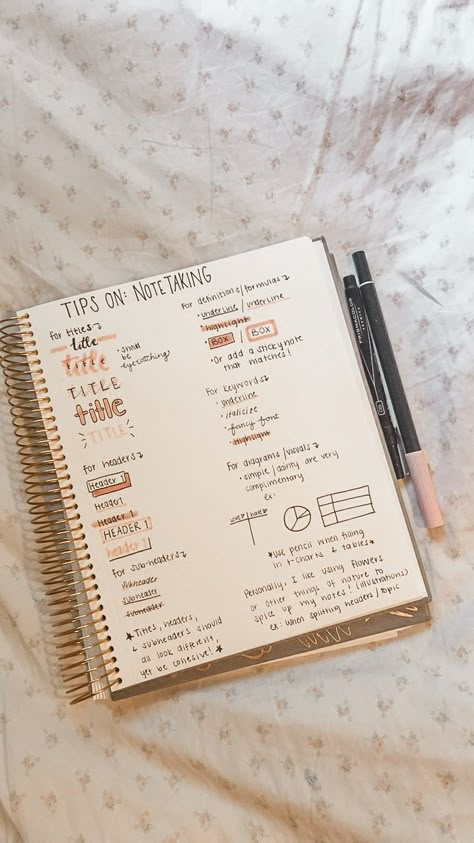 TIPS ON: NOTE TAKING
for titles
title
title
TITLE
title
TITLE
• should be
eye catching!
for headers
Header 1
Header 1
Header 1
HEADER 1
header 1
for sub-headers
subheader
subheader
subheader
★ Titles, headers,
+ subheaders should
all look different,
yet be cohesive! ★
For definitions/formulas
• underline / underline
• highlight
• BOX / BOX
• Or add a sticky note
that matches!
For keywords
• underline
• italicize
• fancy font
• highlight
For diagrams/visuals
• simple/ are very
complimentary
ex:
★ use pencil when filling
in t-charts + tables ★
Personally, I like using flowers
or other things of nature to
spice up my notes! (illustrations)
ex: when splitting headers/topic